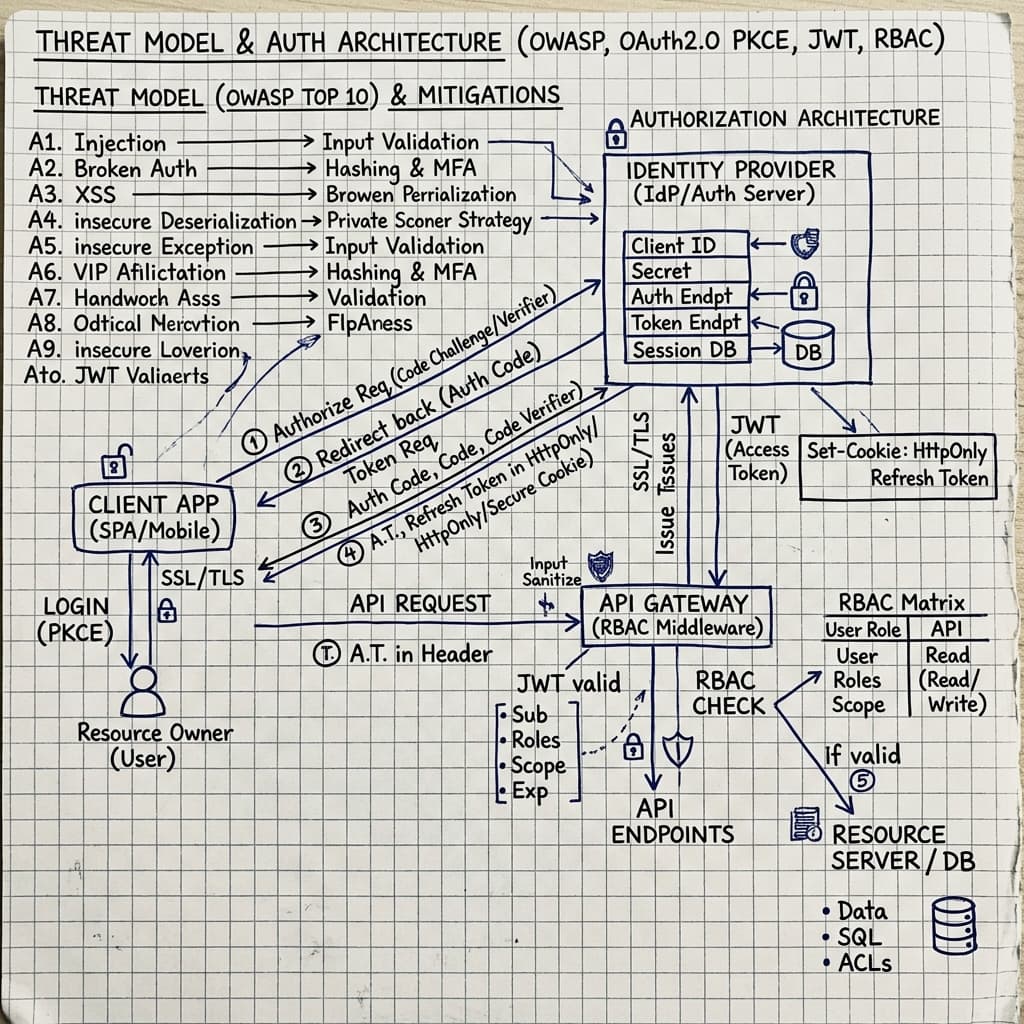 THREAT MODEL & AUTH ARCHITECTURE (OWASP, OAuth2.0 PKCE, JWT, RBAC)
THREAT MODEL (OWASP TOP 10) & MITIGATIONS
A1. Injection → Input Validation
A2. Broken Auth → Hashing & MFA
A3. XSS → Browen Perrialization
A4. insecure Deserialization → Private Sconer Strategy
A5. insecure Exception → Input Validation
A6. VIP Afilictation → Hashing & MFA
A7. Handwoch Asss → Validation
A8. Odtical Mercvtion → FlpAness
A9. insecure Loverion,
Ato. JWT Valiaerts
AUTHORIZATION ARCHITECTURE
IDENTITY PROVIDER
(IdP/Auth Server)
Client ID
Secret
Auth Endpt
Token Endpt
Session DB
DB
① Authorize Req (Code Challenge/Verifier)
② Redirect back (Auth Code)
Token Req
③ Auth Code, Code, Code Verifier)
④ A.T., Refresh Token in HttpOnly/
HttpOnly/Secure Cookie)
SSL/TLS
Issue Tissues
JWT
(Access
Token)
Set-Cookie: HttpOnly
Refresh Token
CLIENT APP
(SPA/Mobile)
SSL/TLS
LOGIN
(PKCE)
Resource Owner
(User)
API REQUEST
T. A.T. in Header
Input
Sanitize
API GATEWAY
(RBAC Middleware)
JWT valid
• Sub
• Roles
• Scope
• Exp
RBAC
CHECK
API
ENDPOINTS
RBAC Matrix
User Role | API
User | Read
Roles | (Read/
Scope | Write)
If valid
⑤
RESOURCE
SERVER/DB
• Data
• SQL
• ACLs